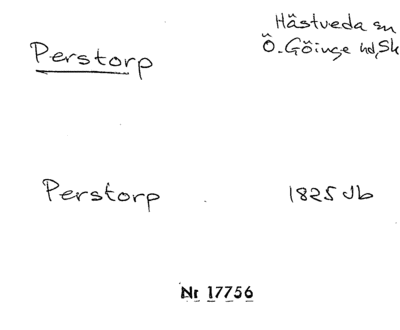 Perstorp
Hästveda sn
Ö. Göinge hd, Sk
Perstorp 1825 Jb
Nr 17756